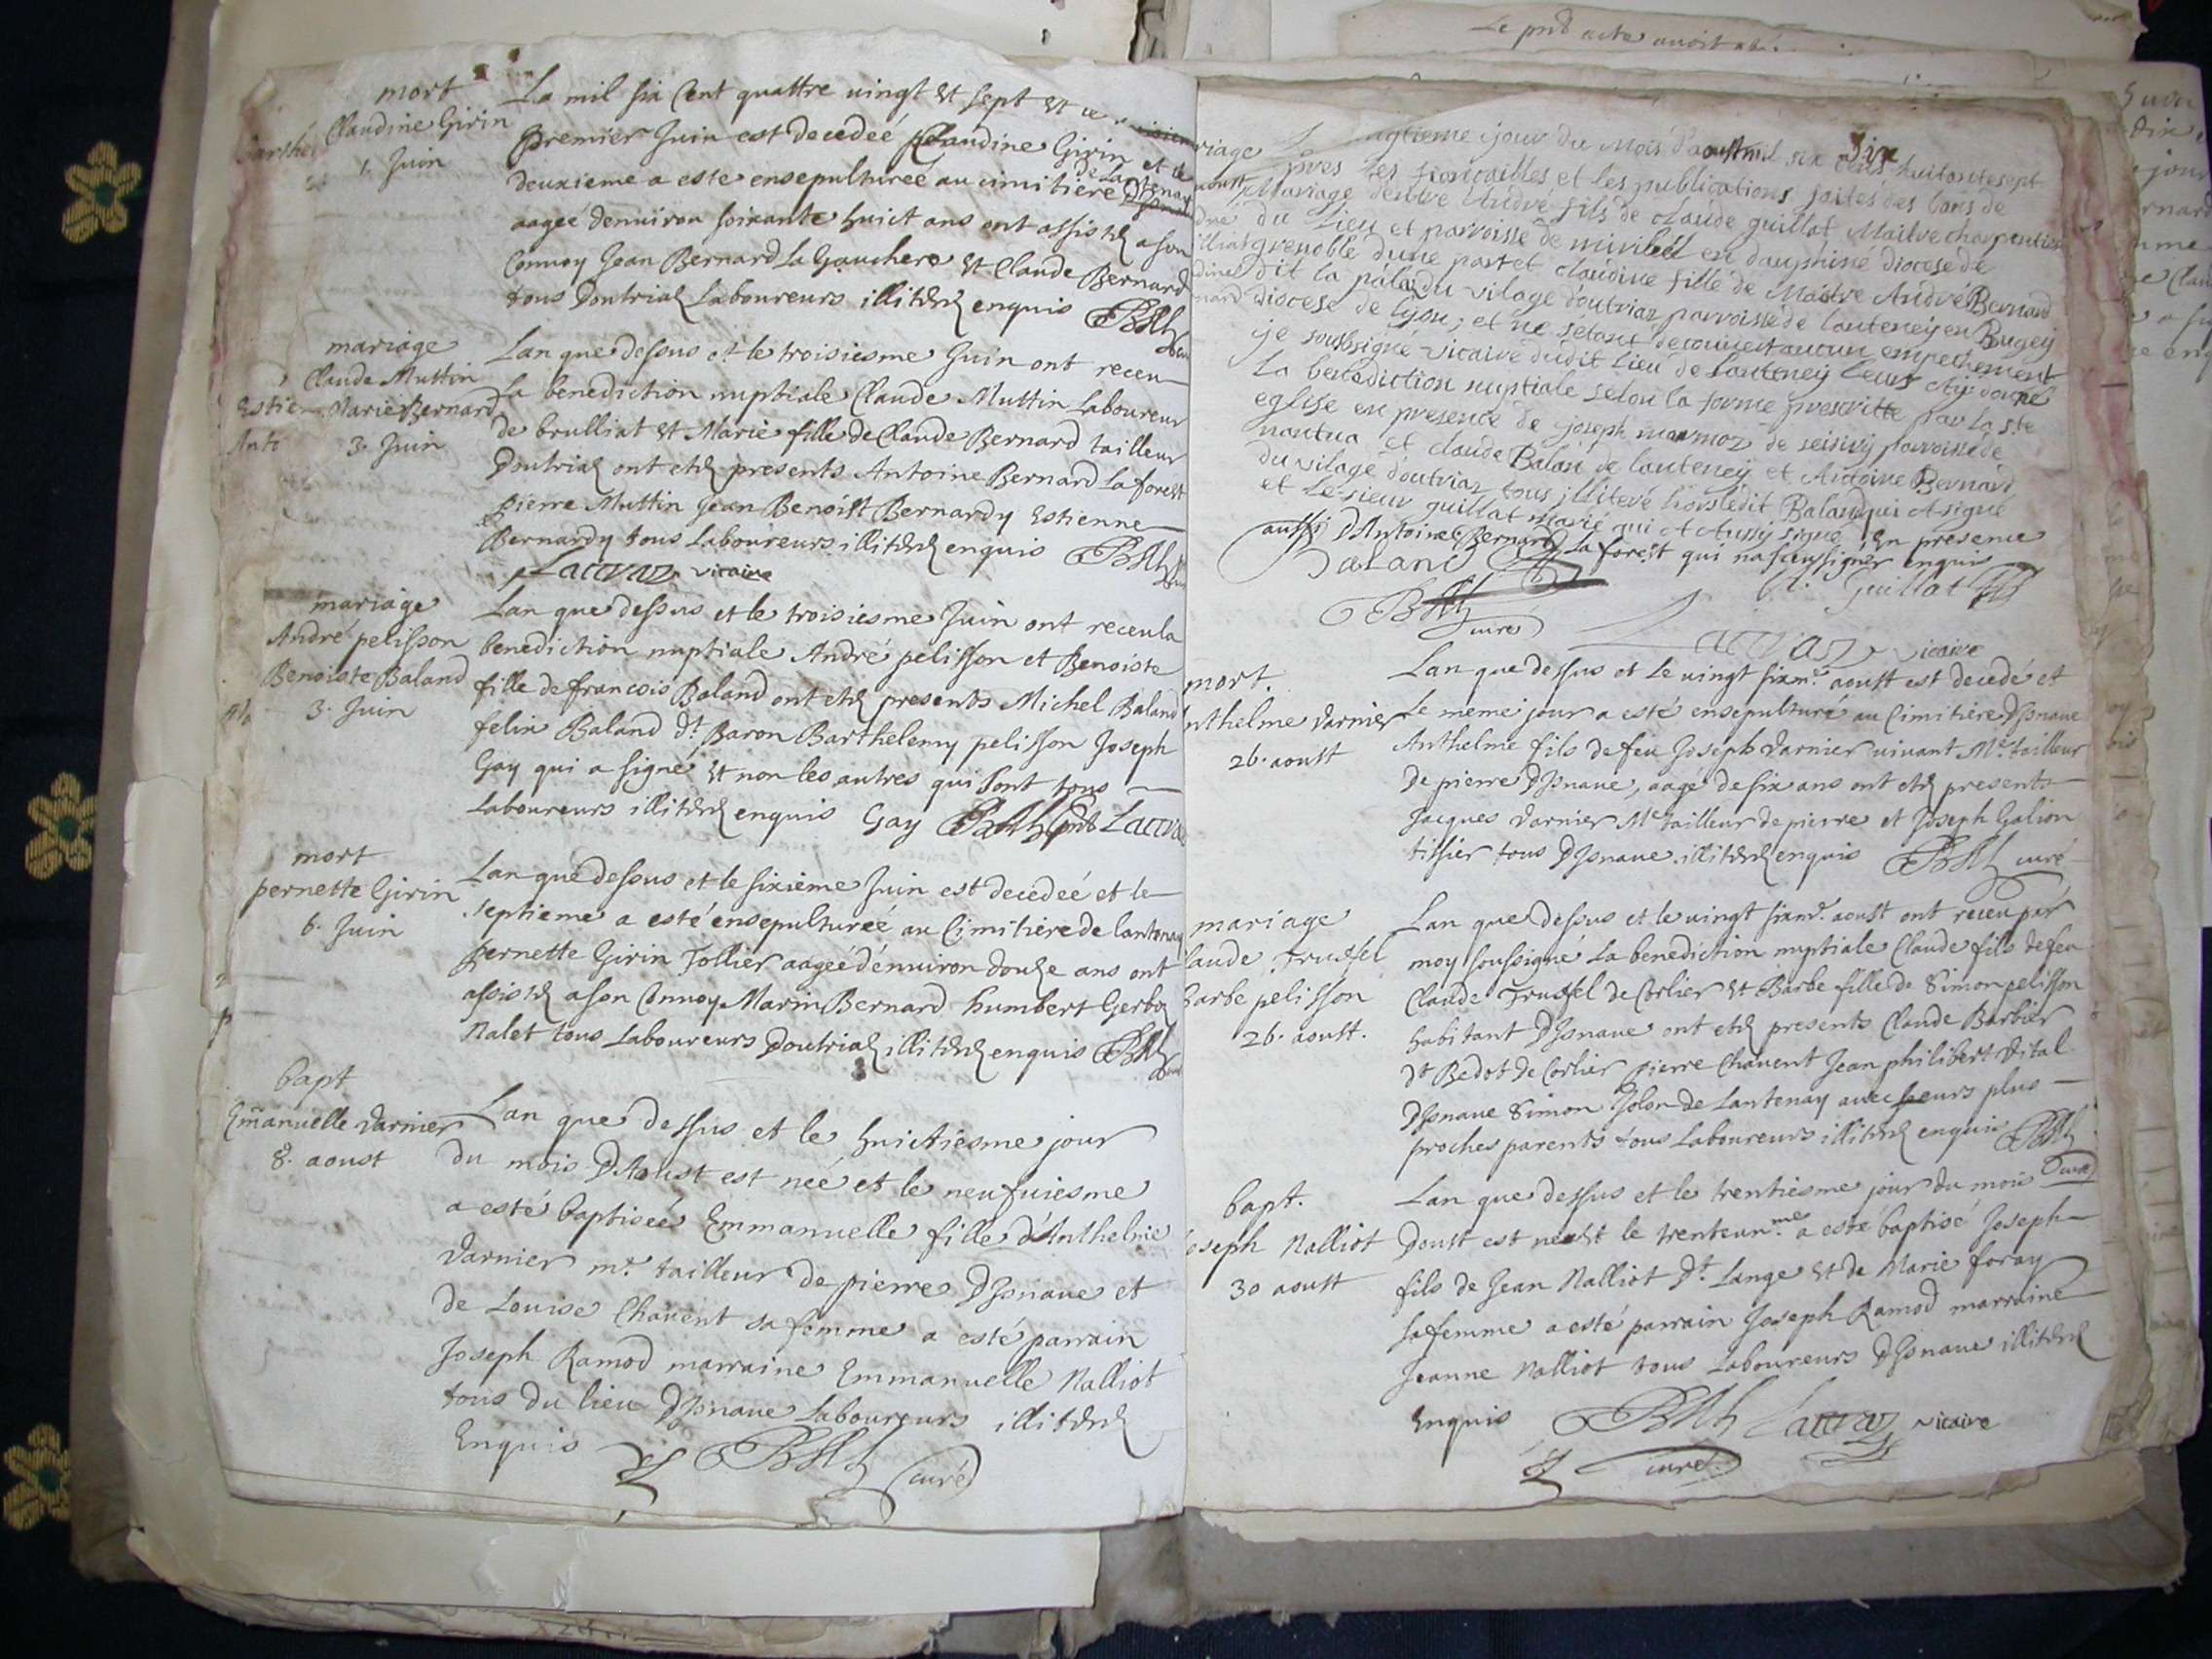 mort
Claudine Girin
1. Juin
La mil six Cent quattre vingt et sept et le
premier Juin est decedeé Claudine Girin et le
deuxieme a este ensepultureé au cimitiere de Lantenay
aageé denuiron soixante huict ans ont assistez a son
Conuoy Jean Bernard La Gauchere et Claude Bernard
tous Doutriaz Laboureurs illiterez enquis
mariage
Claude Muttin
Marie Bernard
3. Juin
Lan que dessus et le troisiesme Juin ont receu
La benediction nuptiale Claude Muttin Laboureur
de brulliat et Marie fille de Claude Bernard tailleur
Doutriaz ont etez presents Antoine Bernard La forest
pierre Muttin Jean Benoist Bernardy Estienne
Bernardy tous Laboureurs illiterez enquis
vicaire
mariage
André pelisson
Benoiste Baland
3. Juin
Lan que dessus et le troisiesme Juin ont receu la
benediction nuptiale André pelisson et Benoiste
fille de francois Baland ont etez presents Michel Baland
felix Baland dt Baron Barthelemy pelisson Joseph
Gay qui a signé et non les autres qui sont tous
Laboureurs illiterez enquis Gay
mort
pernette Girin
6. Juin
Lan que dessus et le sixieme Juin est decedeé et le
septieme a esté ensepultureé au Cimitiere de lantenay
pernette Girin Tollier aageé denuiron douze ans ont
assistez a son Conuoy Marin Bernard humbert Gerboz
Nalet tous Laboureurs Doutriaz illiterez enquis
bapt
Emanuelle Darnier
8. aoust
Lan que dessus et le huictiesme jour
du mois D'Aoust est neé et le neufuiesme
a esté baptiseé Emmanuelle fille d'Anthelme
Darnier mr. tailleur de pierre DJsnaue et
de Louise Chauent sa femme a esté parrain
Joseph Ramod marraine Emmanuelle Nalliot
tous du lieu DJsnaue Laboureurs illiterez
Enquis
curé
Le pnt acte auoit
jour du Mois d'aoust mil six cens huitante sept
les fiancailles et les publications faites des bans de
Mariage dentre André fils de claude guillat Maitre charpentier
du Lieu et parroisse de miribel en dauphiné diocese de
grenoble dune part et claudine fille de Maitre André Bernard
dit la du vilage d'outriaz parroisse de lanteney en Bugey
diocese de lyon, et ne setant decouvert aucun empechement
je soussigné vicaire dudit lieu de lanteney leur ay donné
La benediction nuptiale selon la forme prescritte par la ste
eglise en presence de joseph marmoz de parroisse de
nantua et claude Baland de lanteney et Antoine Bernard
du vilage d'outriaz tous illiteré hors ledit Baland qui A signé
et le sieur guillat marié qui A Aussy signé En presence
aussi D'Antoine Bernard La forest qui na sceu signer enquis
Baland
Guillat
curé
vicaire
mort.
nthelme Darnier
26. aoust
Lan que dessus et le uingt sixme. aoust est decedé et
Le meme jour a esté ensepulturé au Cimitiere DJsnaue
Anthelme fils de feu Joseph Darnier uiuant Me tailleur
De pierre DJsnaue, aagé de six ans ont etez presents
Jacques Darnier Me tailleur de pierre et Joseph Galion
tissier tous DJsnaue illiterez enquis
curé
mariage
laude Trussel
barbe pelisson
26. aoust.
Lan que dessus et le uingt sixme. aoust ont receu par
moy soussigné La benediction nuptiale Claude fils de feu
Claude Trussel de Corlier et Barbe fille de Simon pelisson
habitant DJsnaue ont etez presents Claude Barbier
dt Bedot de Corlier pierre Chauent Jean philibert Vital
DJsnaue Simon Jolon de Lantenay auec leurs plus
proches parents tous Laboureurs illiterez enquis
curé
bapt.
oseph Nalliot
30 aoust
Lan que dessus et le trentiesme jour du mois
Doust est né et le trenteunme. a esté baptisé Joseph
fils de Jean Nalliot Dt. Lange et de Marie foray
sa femme a esté parrain Joseph Ramod marraine
Jeanne Nalliot tous Laboureurs DJsnaue illiterez
Enquis
vicaire
curé